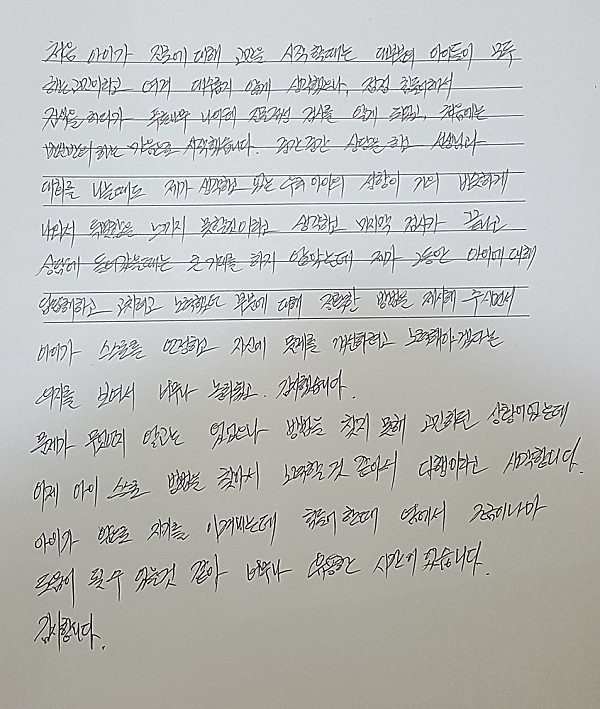 처음 아이가 진로에 대해 고민을 시작할때는 대부분의 아이들이 모두
하는 고민이라고 여겨 대수롭지 않게 생각했으나, 점점 힘들어해서
검색을 하다가 나아테 진로적성 검사를 알게 되었고, 처음에는
반신반의하는 마음으로 시작했습니다. 중간중간 상담을 하고 선생님과
대화를 나눌때도 제가 생각하고 있는 우리 아이의 성향이 거의 비슷하게
나와서 특별함을 느끼지 못할것이라고 생각하고 마지막 검사가 끝나고
상담에 들어갔을때는 큰 기대를 하지 않았는데 제가 그동안 아이에 대해
답답해하고 고치려고 노력했던 부분에 대해 조목조목 방법을 제시해 주시면서
아이가 스스로를 인정하고 자신의 문제를 개선하려고 노력해야겠다는
의지를 보여서 너무나 놀라웠고, 감사했습니다.
문제가 무엇인지 알고는 있었으나 방법을 찾지 못해 고민하던 상황이었는데
이제 아이 스스로 방법을 찾아서 노력할것 같아서 다행이라고 생각합니다.
아이가 앞으로 자기를 이겨내는데 힘들어 할때 옆에서 조금이나마
도움이 될 수 있을것 같아 너무나 유용한 시간이었습니다.
감사합니다.